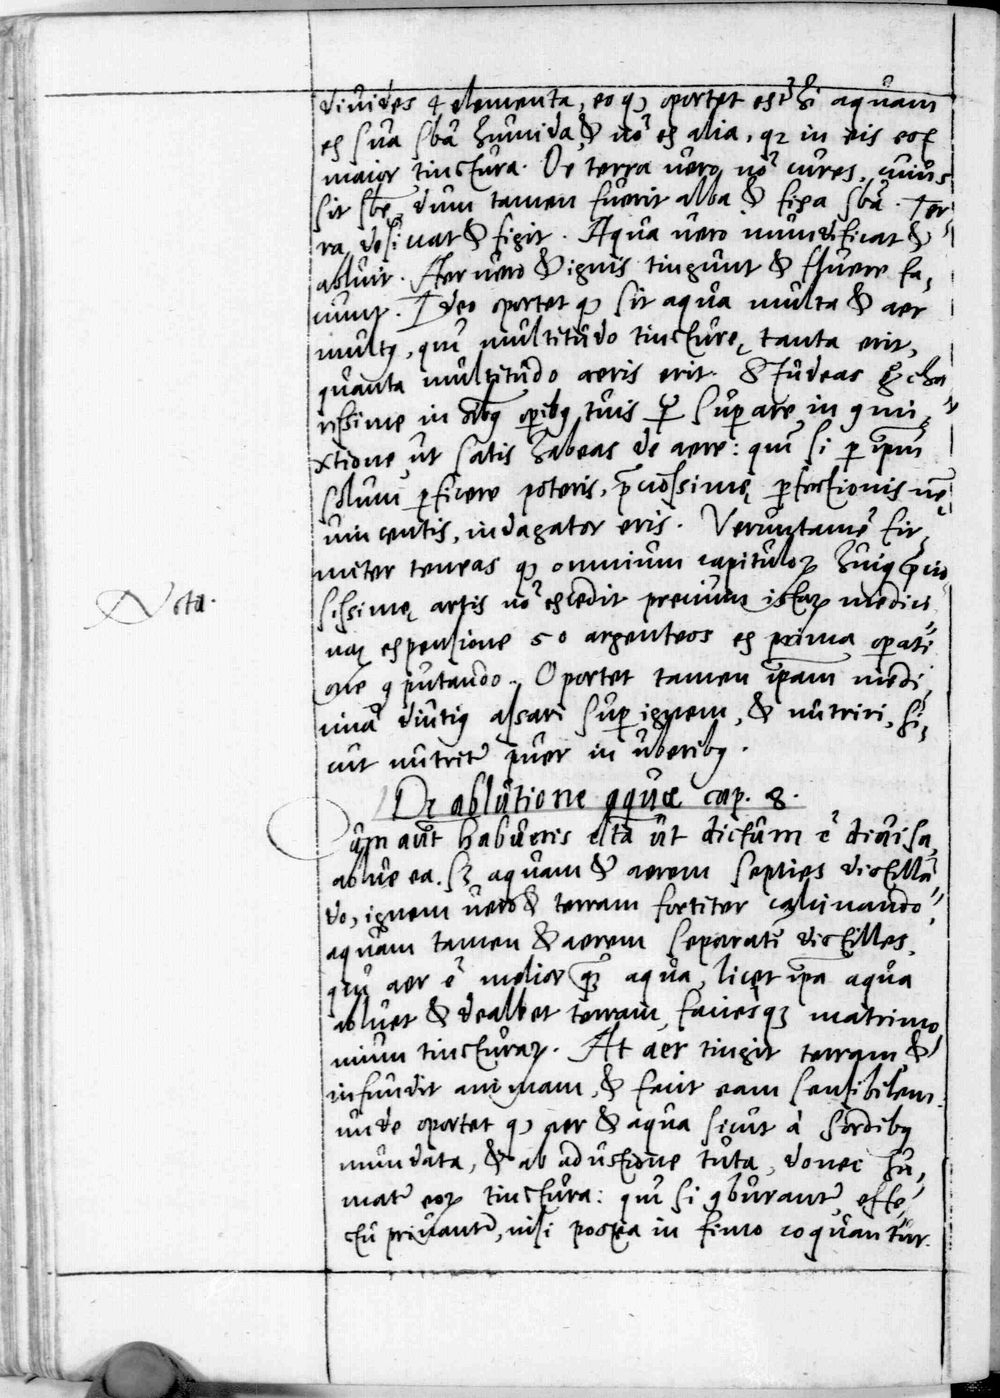 diuides 4 elementa, eo qꝫ oportet aquam
ex sua sb̃a humida, & nõ ex alia, qꝛ in eis eoꝝ
maior tinctura. De terra uero nõ cures, cuius
sit sb̃ę, dum tamen fuerit alba & fixa sb̃a. Ter
ra, desiccat & figit. Aqua uero mundificat &
abluit. Aer uero & ignis tingunt & fluere fa,
ciunt. Ideo oportet qꝫ sit aqua multa & aer
multꝰ, qm̃ multitudo tincturę, tanta erit,
quanta multitudo aeris erit. Studeas cha
rissime in oĩbꝰ oꝑibꝰ tuis suꝑare, in ꝯmi,
xtione, ut satis habeas de aere: qm̃ si ꝑ ip̃m
solum ꝑficere poteris, p̃ciosissimę ꝑfectionis
uincentis, indagator eris. Veruntamẽ fir,
miter teneas qꝫ omnium capituloꝝ huiꝰ p̃cio
sissimę artis nõ excedit precium istaꝝ medici
naꝝ expensione 50 argenteos ex prima oꝑati
one ꝯputando. Oportet tamen ip̃am medi,
cinã diutiꝰ assari suꝑ ignem, & nutriri, si,
cut nutrit̃ puer in uberibꝰ.
Nota.
De ablutione aquæ cap. 8.
Cum aũt habueris elta ut dictum ẽ diuisa,
ablue ea. Sꝫ aquam & aerem septies distillã
do, ignem uero & terram fortiter calcinando
aquam tamen & aerem separatĩ distilles,
qm̃ aer ẽ melior qꝫ aqua, licet ip̃a aqua
abluet & dealbet terram, faciesqꝫ matrimo,
nium tincturaꝝ. At aer tingit terram &
infundit animam, & facit eam sensibilem.
unde oportet qꝫ aer & aqua sicut à sordibꝰ
mundata, & ab adustione tuta, donec fir,
mat̃ eoꝝ tinctura: qm̃ si ꝯburant̃, effe
ctu priuant̃, nisi postea in fimo coquantur.